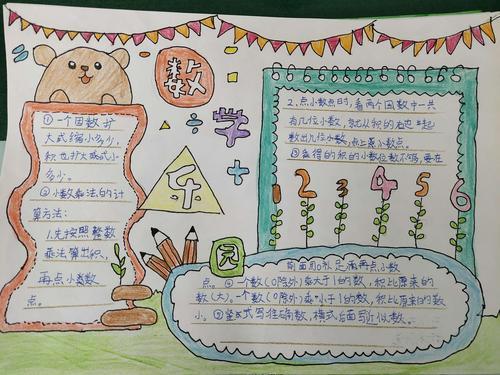 数
学
乐
园
①一个因数扩
大或缩小多少,
积也扩大或缩小
多少。
②小数乘法的计
算方法:
1.先按照整数
乘法算出积,
再点小数
点。
2、点小数点时,看两个因数中一共
有几位小数,就从积的右边起
数出几位小数,点上小数点。
③乘得的积的小数位数不够,要在
1 2 3 4 5 6
前面用0补足,再点小数
点。④一个数(0除外)乘大于1的数,积比原来的
数(大)。一个数(0除外)乘小于1的数,积比原来的数
小。⑤竖式写准确数,横式后面写近似数。